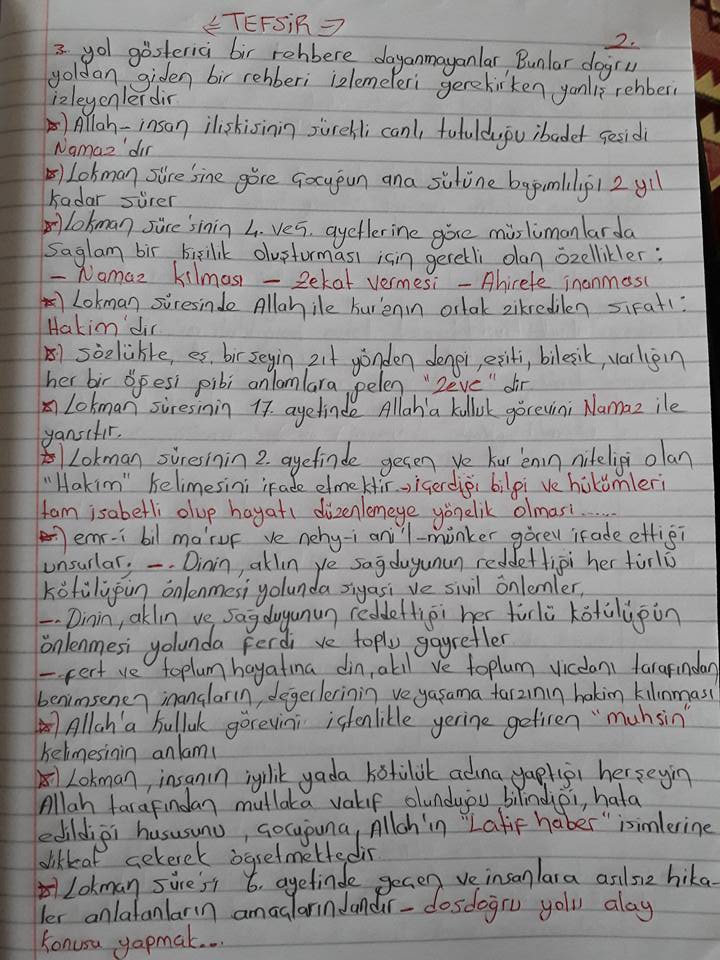 <TEFSİR=>
2.
3. yol gösterici bir rehbere dayanmayanlar, Bunlar doğru
yoldan giden bir rehberi izlemeleri gerekirken yanlış rehberi
izleyenlerdir.
*) Allah-insan ilişkisinin sürekli canlı tutulduğu ibadet çeşidi
Namaz'dır
*) Lokman Sûre'sine göre çocuğun ana sütüne bağımlılığı 2 yıl
kadar sürer
*) Lokman süre'sinin 4. ve 5. ayetlerine göre müslümanlarda
sağlam bir kişilik oluşturması için gerekli olan özellikler:
- Namaz kılması - Zekat vermesi - Ahirete inanması
*) Lokman sûresinde Allah ile kur'enın ortak zikredilen sıfatı:
Hakim'dir
*) Sözlükte, eş, bir şeyin zıt yönden dengi, eşiti, bileşik, varlığın
her bir öğesi gibi anlamlara gelen "zevc" dir
*) Lokman sûresinin 17. ayetinde Allah'a kulluk görevini Namaz ile
yansıtır.
*) Lokman sûresinin 2. ayetinde geçen ve kur'enın niteliği olan
"Hakim" kelimesini ifade etmektir. → içerdiği bilgi ve hükümleri
tam isabetli olup hayatı düzenlemeye yönelik olması.....
*) emr-i bil ma'ruf ve nehy-i ani'l-münker görev ifade ettiği
unsurlar; -. Dinin, aklın ve sağduyunun reddettiği her türlü
kötülüğün önlenmesi yolunda siyasi ve sivil önlemler,
-. Dinin, aklın ve sağduyunun reddettiği her türlü kötülüğün
önlenmesi yolunda ferdi ve toplu gayretler
- fert ve toplum hayatına din, akıl ve toplum vicdanı tarafından
benimsenen inançların, değerlerinin ve yaşama tarzının hakim kılınması
*) Allah'a kulluk görevini içtenlikle yerine getiren "muhsin"
kelimesinin anlamı
*) Lokman, insanın iyilik yada kötülük adına yaptığı herşeyin
Allah tarafından mutlaka vakıf olunduğu bilindiği, hata
edildiği hususunu, çocuğuna, Allah'ın "Latif haber" isimlerine
dikkat çekerek öğretmektedir.
*) Lokman Sûre'si 6. ayetinde geçen ve insanlara asılsız hika-
ler anlatanların amaçlarındandır - dosdoğru yolu alay
konusu yapmak...